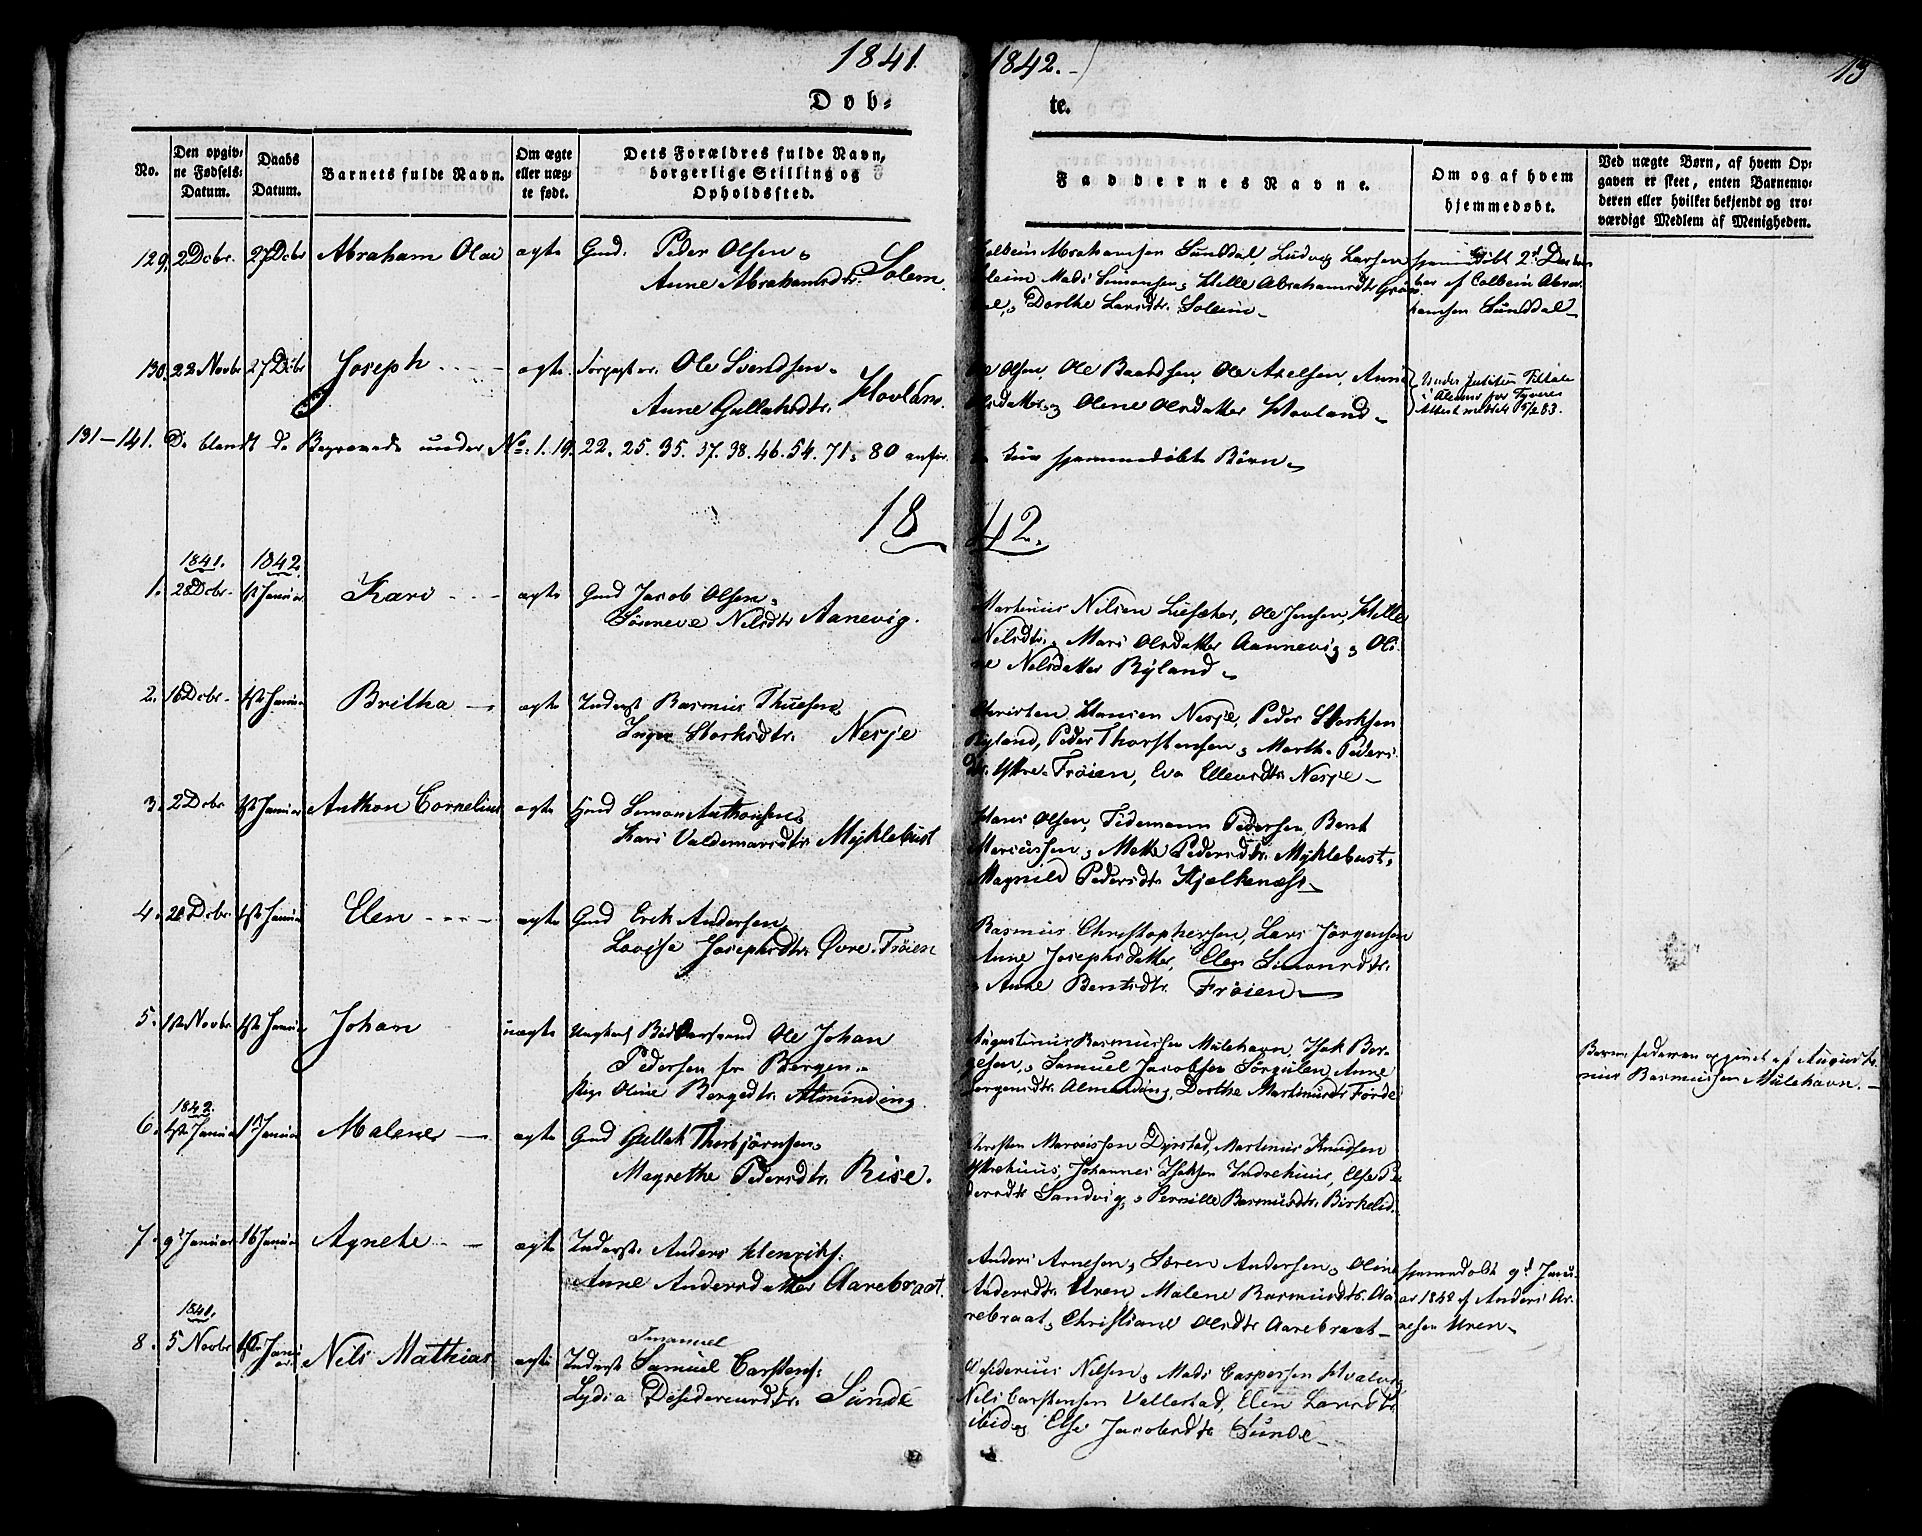 1841.
1842.
13
Døb-
te.
No.
Den opgiv-
ne Fødsels-
Datum.
Daabs
Datum.
Barnets fulde Navn.
Om ægte
eller uæg-
te født.
Dets Forældres fulde Navn,
borgerlige Stilling og
Opholdssted.
Faddernes Navne.
Om og af hvem
hjemmedøbt.
Ved uægte Børn, af hvem Op-
gaven er skeet, enten Barnemo-
deren eller hvilket bekjendt og tro-
værdigt Medlem af Menigheden.
129. 2 Dcbr. 27 Dcbr Abraham Olai ægte Gmd. Peder Olsen &
Anne Abrahamsdtr. Solem.
Colbein Abrahamsen Sunddal, Ludvig Larsen
Soleim Mads Simonsen, Hille Abrahamsdtr
& Dorthe Larsdtr. Soleim
hjemmedøbt 2d Decem
ber af Colbein Abra-
hamsen Sunddal
130. 22 Novbr 27 Dcbr Joseph ægte Ole Svendsen &
Anne Gullaksdtr. Hovland.
Ole Olsen, Ole Baardsen, Ole Axelsen, Anne
Olsdatter & Oline Olsdatter Hovland
Under Justitiens Tiltale
131-141. De blandt de Begravede under No. 1. 19. 22. 25. 35. 37. 38. 46. 54. 71 & 80 anfør
te kun hjemmedøbte Børn
1842.
1841. 1842.
1. 28 Dcbr. 1st Januar Kari ægte Gmd Jacob Olsen &
Sønneve Nilsdtr Aanevig.
Martinus Nilsen Liesæter, Ole Jensen, Hille
Nilsdtr. Mari Olsdatter Aannevig & Oli-
ne Nilsdatter Ryland
2. 16 Dcbr. 1st Januar Britha ægte Inderst Rasmus Thuesen &
Inger Storksdtr. Nesje
Christen Hansen Nesje, Peder Storksen
Ryland, Peder Thorstensen & Marthe Peders-
dtr. Yttre-Frøien, Eva Ellevsdtr. Nesje
3. 2 Dcbr. 1st Januar Anthon Cornelius ægte Gmd Simon Anthonsen &
Kari Valdemarsdtr Myklebust
Hans Olsen, Tidemann Pedersen, Bent
Marcussen, Mette Pedersdtr. Myklebust &
Magnild Pedersdtr. Hjelkenæs
4. 28 Dcbr. 1st Januar Elen ægte Gmd Erik Andersen,
Lovise Josephsdtr. Øvre-Frøien
Rasmus Christophersen, Lars Jørgensen
Anne Josephsdatter, Elen Simonsdtr.
& Anne Berntsdtr. Frøien
5. 1st Novbr 1st Januar Johan uægte Ungkarl Ole Johan
Pedersen fra Bergen &
Pige Oline Børgesdtr. Almending.
Augustinus Rasmussen Mulehavn, Isak Bør-
gesen, Samuel Jacobsen Sørgulen, Anne
Børgensdtr. Almending, Dorthe Martinusdtr Førde
Barnefaderen opgivet af Augusti-
nus Rasmussen Mulehavn.
1842.
6. 1st Januar Januar Malene ægte Gmd Gullak Thorbjørnsen &
Magrethe Pedersdtr. Rise.
Christen Marcussen Dyrstad, Martinus Knudsen
Yttrehuus, Johannes Isaksen Indrehuus, Else Pe-
dersdtr Sandvig, & Pernille Rasmusdtr. Birkelid.
7. 9 Januar 16 Januar Agnete ægte Inderst. Anders Henriks:
Anne Andersdatter Aarebraat.
Anders Arnesen, Søren Andersen, Oline
Andersdtr. Uren Malene Rasmusdtr. Aa-
rebraat, Christiane Olsdtr Aarebraat
hjemmedøbt 9d Janu-
ar 1842 af Anders Ar-
nesen Uren
1841.
8. 5 Novbr 16 Janu
ar. Nils Mathias ægte Inderst Samuel Carstens:
Imanuel
Lydia Desideriusdtr. Sunde
Desiderius Nilsen, Mads Caspersen
Nils Carstensen Vallestad, Elen Larsdtr.
ibid & Else Jacobsdtr Sunde